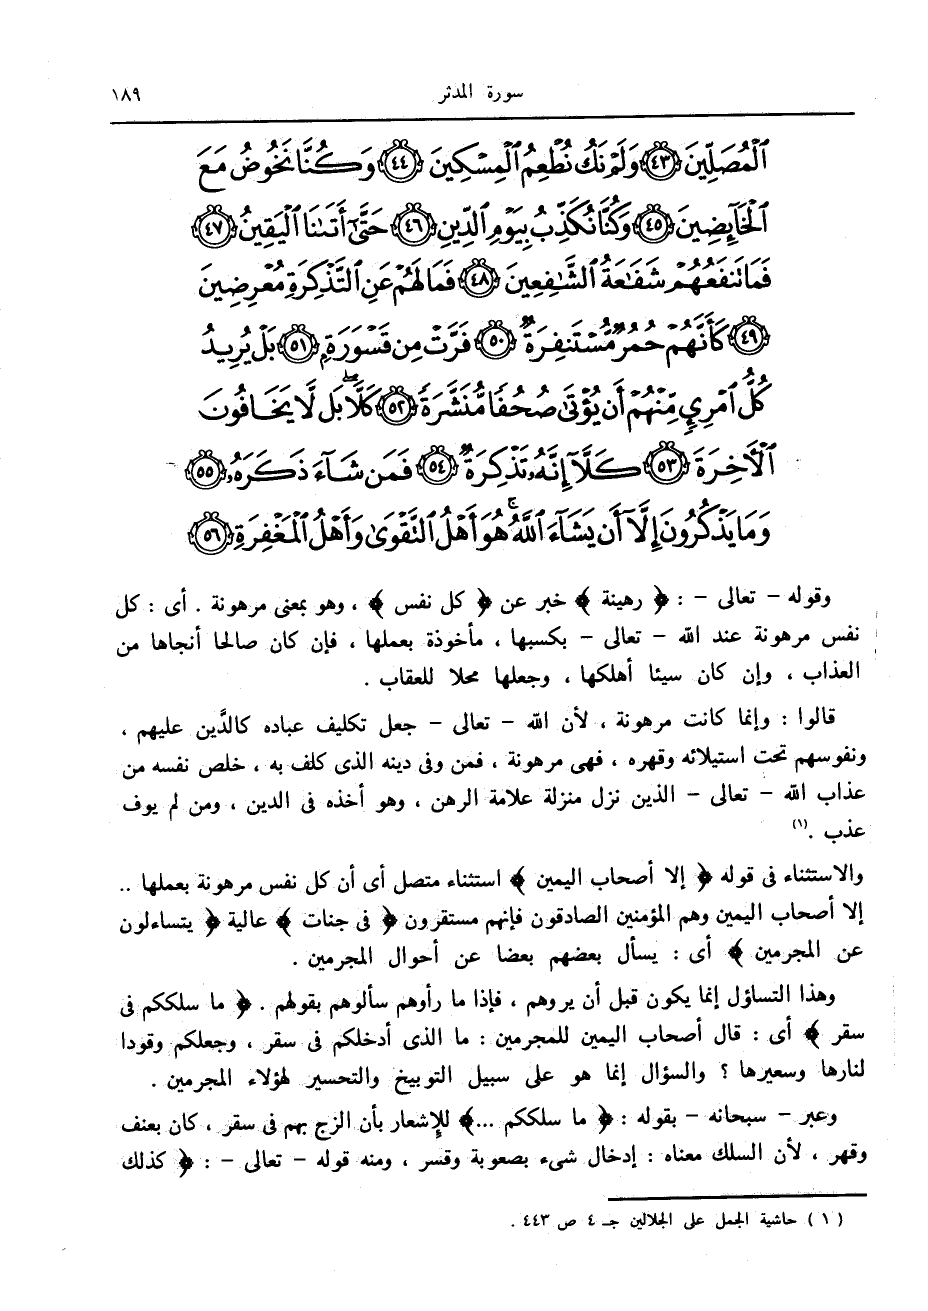 سورة المدثر ١٨٩
ٱلْمُصَلِّينَ ﴿٤٣﴾ وَلَمْ نَكُ نُطْعِمُ ٱلْمِسْكِينَ ﴿٤٤﴾ وَكُنَّا نَخُوضُ مَعَ
ٱلْخَآئِضِينَ ﴿٤٥﴾ وَكُنَّا نُكَذِّبُ بِيَوْمِ ٱلدِّينِ ﴿٤٦﴾ حَتَّىٰٓ أَتَىٰنَا ٱلْيَقِينُ ﴿٤٧﴾
فَمَا تَنفَعُهُمْ شَفَٰعَةُ ٱلشَّٰفِعِينَ ﴿٤٨﴾ فَمَا لَهُمْ عَنِ ٱلتَّذْكِرَةِ مُعْرِضِينَ
﴿٤٩﴾ كَأَنَّهُمْ حُمُرٌ مُّسْتَنفِرَةٌ ﴿٥٠﴾ فَرَّتْ مِن قَسْوَرَةٍۭ ﴿٥١﴾ بَلْ يُرِيدُ
كُلُّ ٱمْرِئٍ مِّنْهُمْ أَن يُؤْتَىٰ صُحُفًا مُّنَشَّرَةً ﴿٥٢﴾ كَلَّا ۖ بَل لَّا يَخَافُونَ
ٱلْأَخِرَةَ ﴿٥٣﴾ كَلَّآ إِنَّهُۥ تَذْكِرَةٌ ﴿٥٤﴾ فَمَن شَآءَ ذَكَرَهُۥ ﴿٥٥﴾
وَمَا يَذْكُرُونَ إِلَّآ أَن يَشَآءَ ٱللَّهُ ۚ هُوَ أَهْلُ ٱلتَّقْوَىٰ وَأَهْلُ ٱلْمَغْفِرَةِ ﴿٥٦﴾
وقوله - تعالى - : ﴿ رهينة ﴾ خبر عن ﴿ كل نفس ﴾ ، وهو بمعنى مرهونة . أى : كل
نفس مرهونة عند الله - تعالى - بكسبها ، مأخوذة بعملها ، فإن كان صالحا أنجاها من
العذاب ، وإن كان سيئا أهلكها ، وجعلها محلا للعقاب .
قالوا : وإنما كانت مرهونة ، لأن الله - تعالى - جعل تكليف عباده كالدَّين عليهم ،
ونفوسهم تحت استيلائه وقهره ، فهى مرهونة ، فمن وفى دينه الذى كلف به ، خلص نفسه من
عذاب الله - تعالى - الذين نزل منزلة علامة الرهن ، وهو أخذه فى الدين ، ومن لم يوف
عذب .(١)
والاستثناء فى قوله ﴿ إلا أصحاب اليمين ﴾ استثناء متصل أى أن كل نفس مرهونة بعملها ..
إلا أصحاب اليمين وهم المؤمنين الصادقون فإنهم مستقرون ﴿ فى جنات ﴾ عالية ﴿ يتساءلون
عن المجرمين ﴾ أى : يسأل بعضهم بعضا عن أحوال المجرمين .
وهذا التساؤل إنما يكون قبل أن يروهم ، فإذا ما رأوهم سألوهم بقولهم . ﴿ ما سلككم فى
سقر ﴾ أى : قال أصحاب اليمين للمجرمين : ما الذى أدخلكم فى سقر ، وجعلكم وقودا
لنارها وسعيرها ؟ والسؤال إنما هو على سبيل التوبيخ والتحسير لهؤلاء المجرمين .
وعبر - سبحانه - بقوله : ﴿ ما سلككم ...﴾ للإشعار بأن الزج بهم فى سقر ، كان بعنف
وقهر ، لأن السلك معناه : إدخال شىء بصعوبة وقسر ، ومنه قوله - تعالى - : ﴿ كذلك
( ١ ) حاشية الجمل على الجلالين جـ ٤ ص ٤٤٣ .